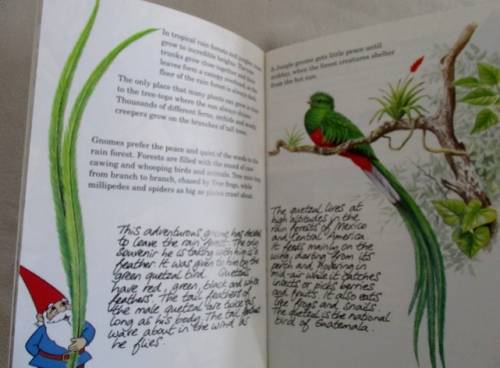 In tropical rain forests and jungles
grow to incredible heights. The
trunks grow close together and their
leaves form a canopy overhead, so the
floor of the rain forest is always dark.
The only place that many plants can grow is
to the tree-tops where the sun always shines.
Thousands of different ferns, orchids and woody
creepers grow on the branches of tall trees.
Gnomes prefer the peace and quiet of the woods to the
rain forest. Forests are filled with the sound of
cawing and whooping birds and animals. Tree
from branch to branch, chased by Tree frogs, while
millipedes and spiders as big as plates crawl about.
This adventurous gnome has decided
to leave the rain forest. The only
souvenir he is taking with him is a
feather. It was given to him by the
green quetzal bird. Quetzals
have red, green, black and white
feathers. The tail feathers of
the male quetzal are twice as
long as his body. The tail feathers
wave about in the wind as
he flies.
A Jungle gnome gets little peace until
midday, when the forest creatures shelter
from the hot sun.
The quetzal lives at
high altitudes in the
rain forests of Mexico
and Central America.
It feeds mainly on the
wing, darting from its
perch and hovering in
mid-air while it catches
insects or picks berries
and fruits. It also eats
tree frogs and snails.
The quetzal is the national
bird of Guatemala.